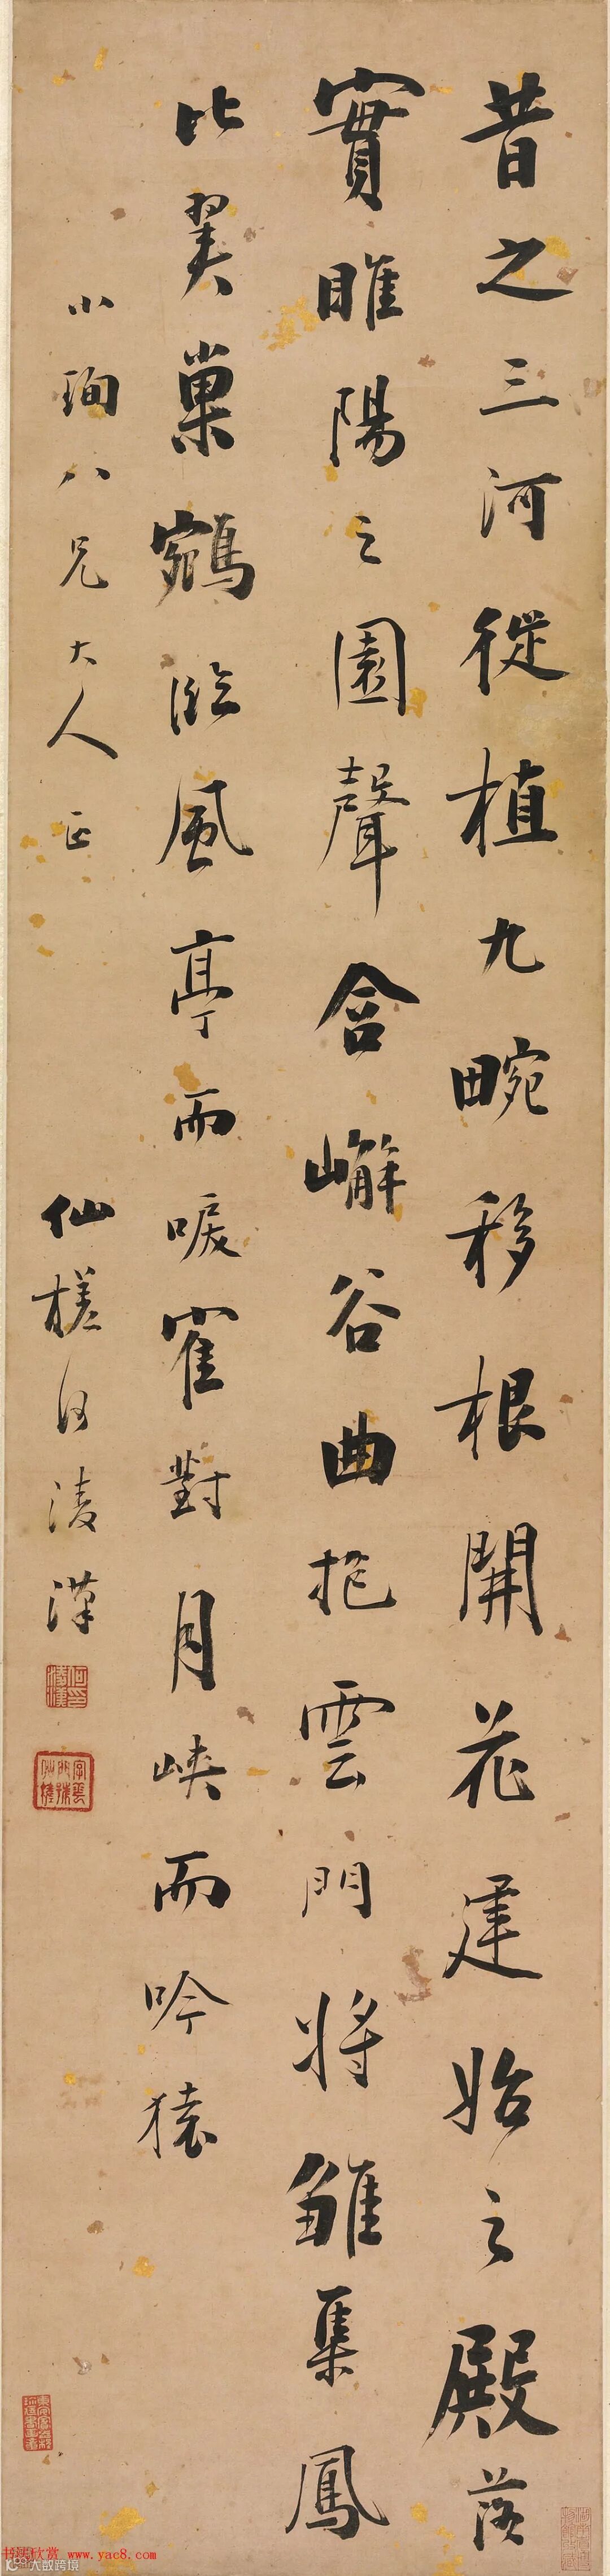 昔之三河徙植九畹移根開花建始之殿落
實睢陽之園聲含嶰谷曲抱雲門將雛集鳳
比翼巢鵷臨風亭而唳隺對月峽而吟猿
小珣八兄大人正
仙槎何淩漢
书法欣赏 www.yac8.com
大数跨境